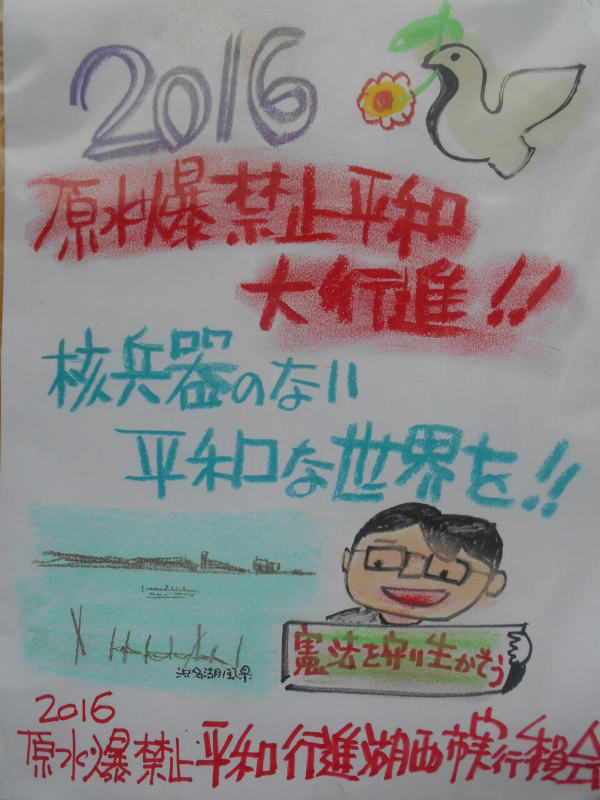 2016
原水爆禁止平和
大行進!!
核兵器のない
平和な世界を!!
浜名湖風景
憲法を守り生かそう
2016
原水爆禁止平和行進湖西市実行委員会